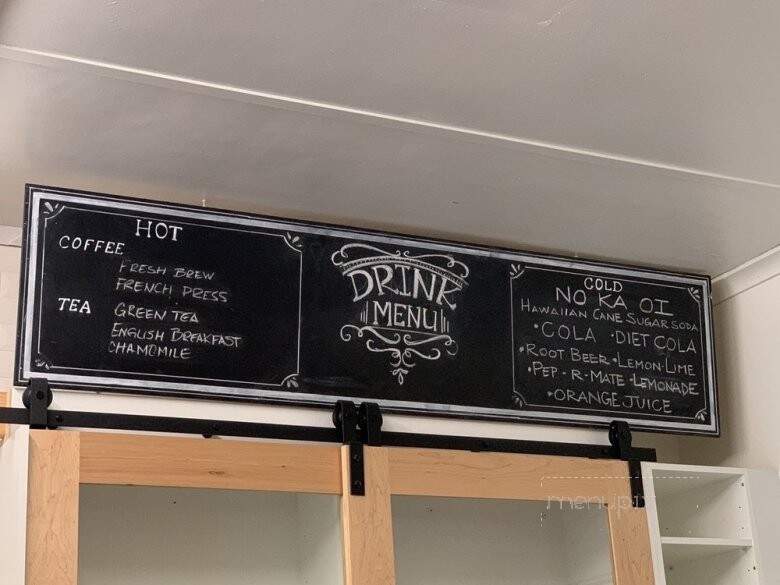 HOT
COFFEE
FRESH BREW
FRENCH PRESS
TEA
GREEN TEA
ENGLISH BREAKFAST
CHAMOMILE
DRINK
MENU
COLD
NO KA OI
HAWAIIAN CANE SUGAR SODA
•COLA •DIET COLA
•ROOT BEER •LEMON-LIME
•PEP-R-MATE •LEMONADE
•ORANGE JUICE
menupix